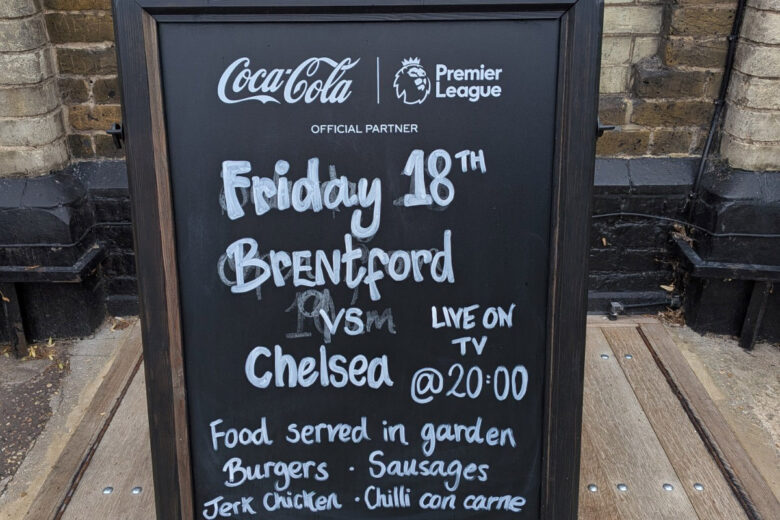 Coca-Cola
Premier
League
OFFICIAL PARTNER
Friday 18TH
Brentford
vs
Chelsea
LIVE ON
TV
@20:00
Food served in garden
Burgers · Sausages
Jerk Chicken · Chilli con carne